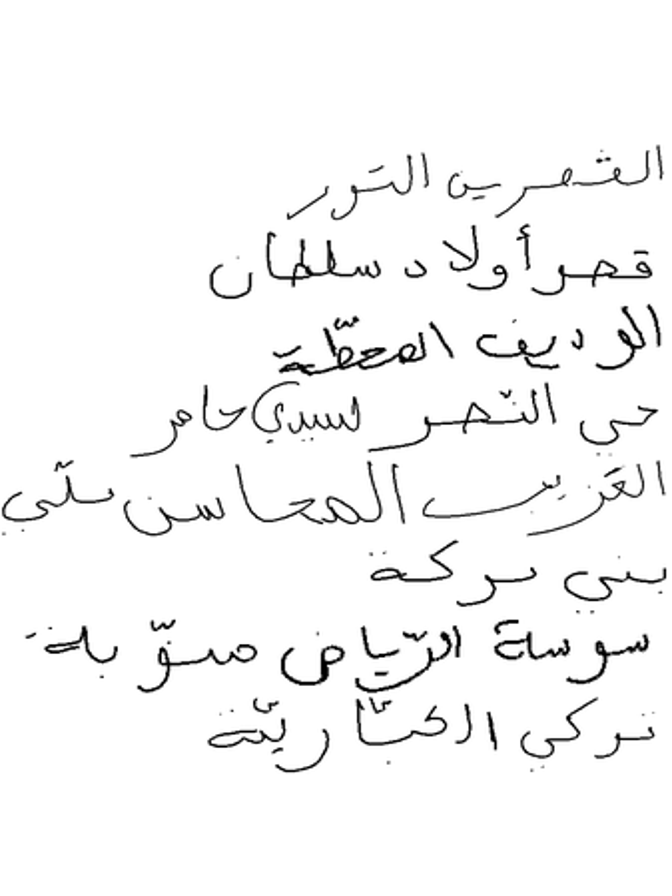 القصرين النور
قصر أولاد سلطان
الرديف المحطّة
حي النّصر سيدي عامر
المحاسن
بني بركة
سوسة الرّياض
تركي الكبّاريّة